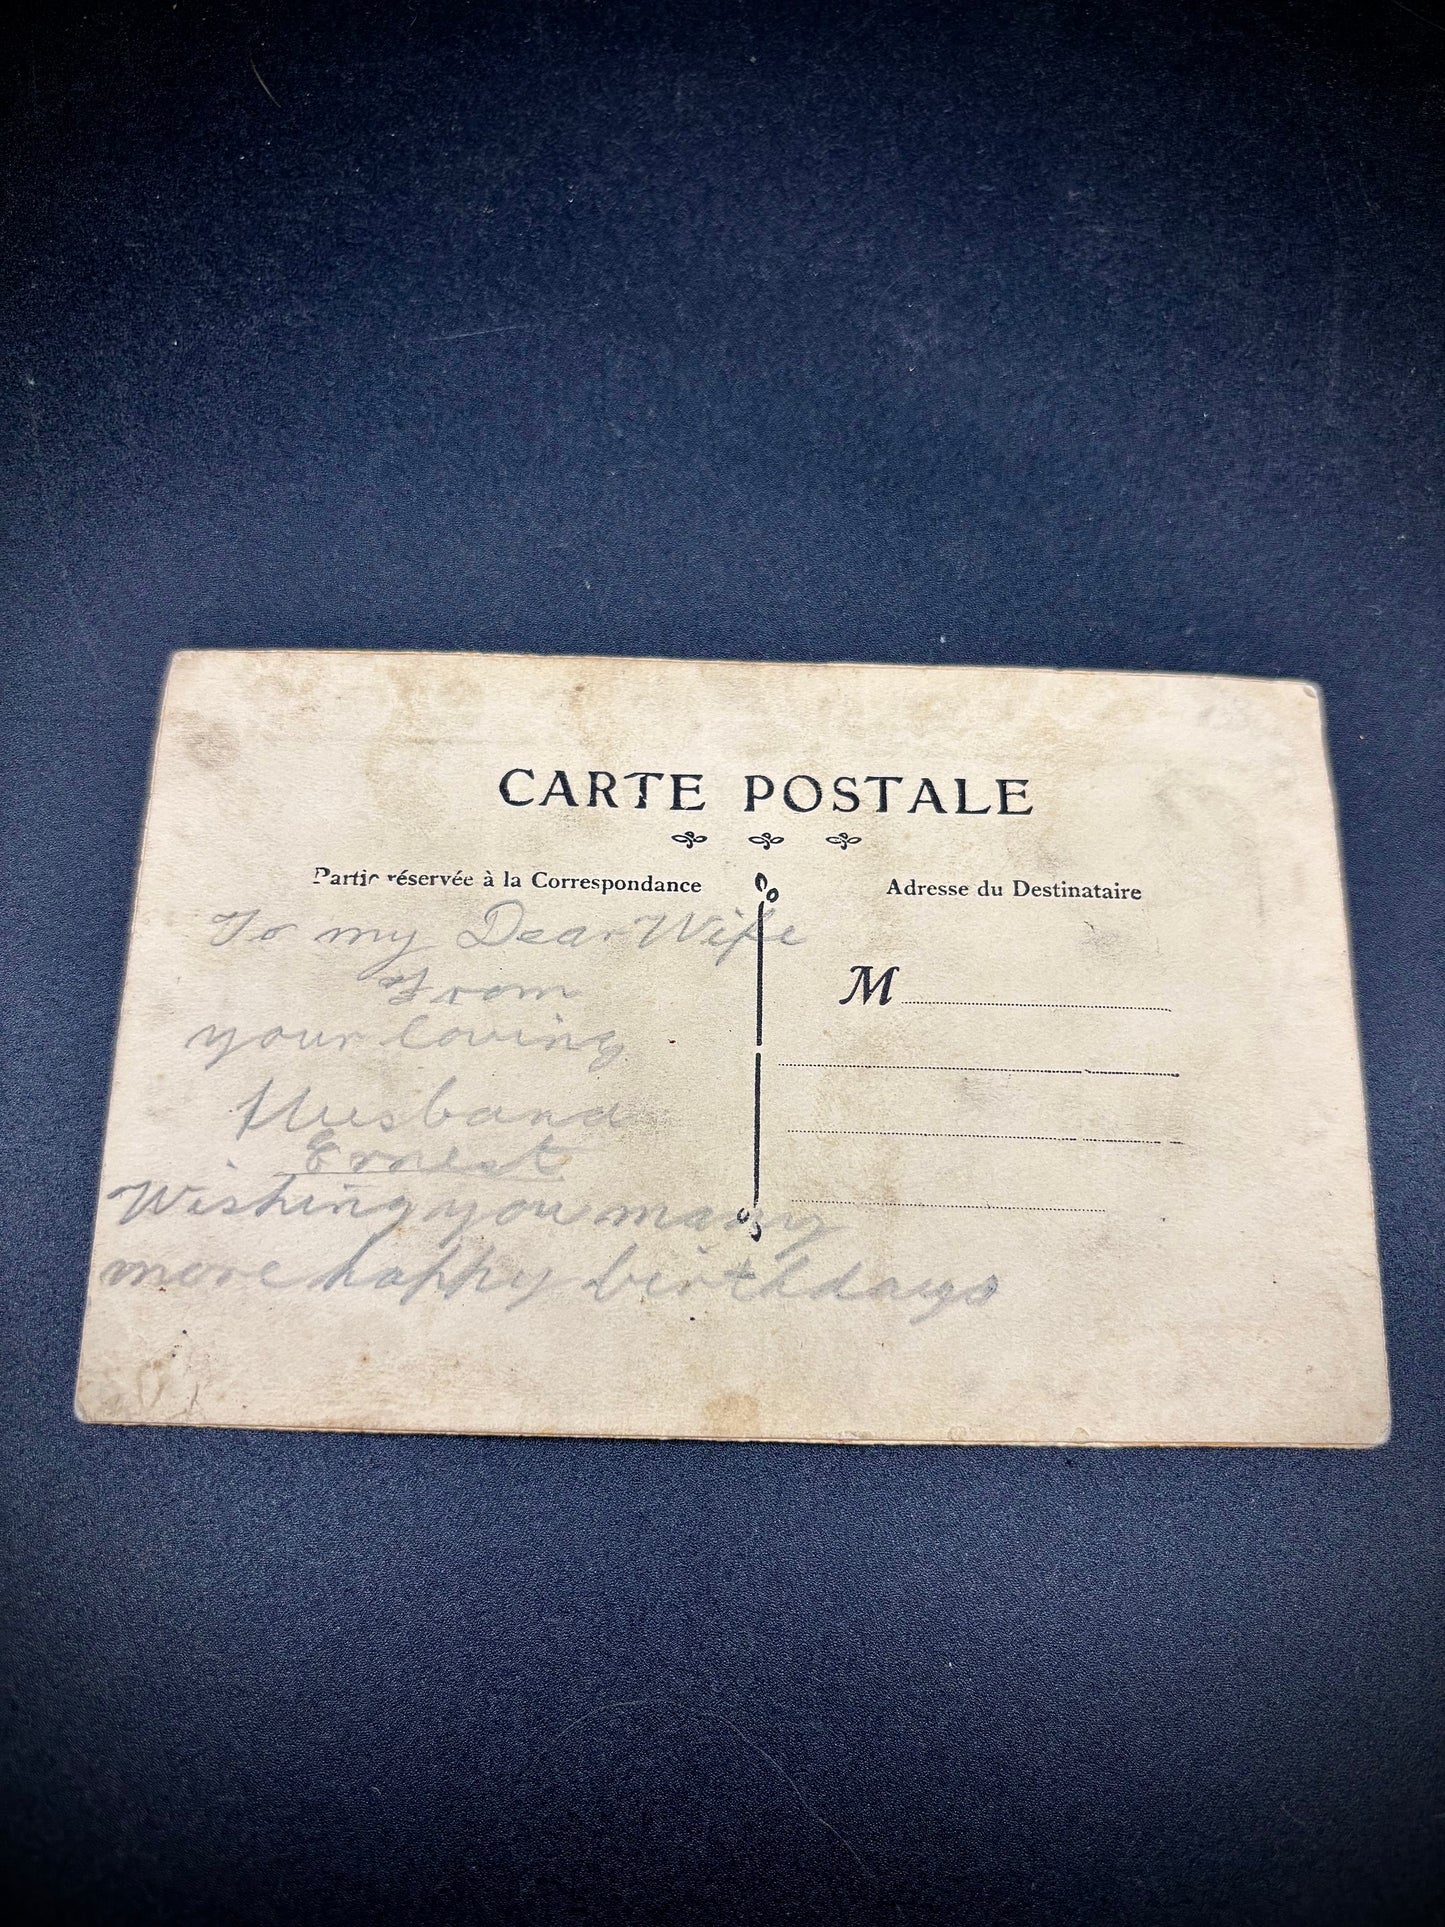 CARTE POSTALE
Partie réservée à la Correspondance
Adresse du Destinataire
M
To my Dear Wife
From
your loving
Husband
Ernest
Wishing you many
more happy birthdays